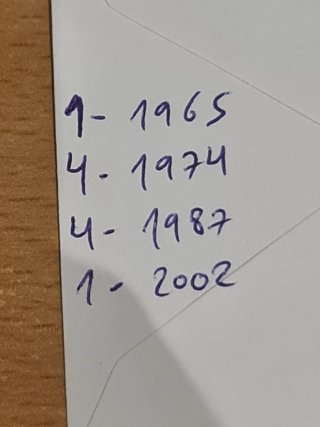 1- 1965
4- 1974
4- 1987
1- 2002